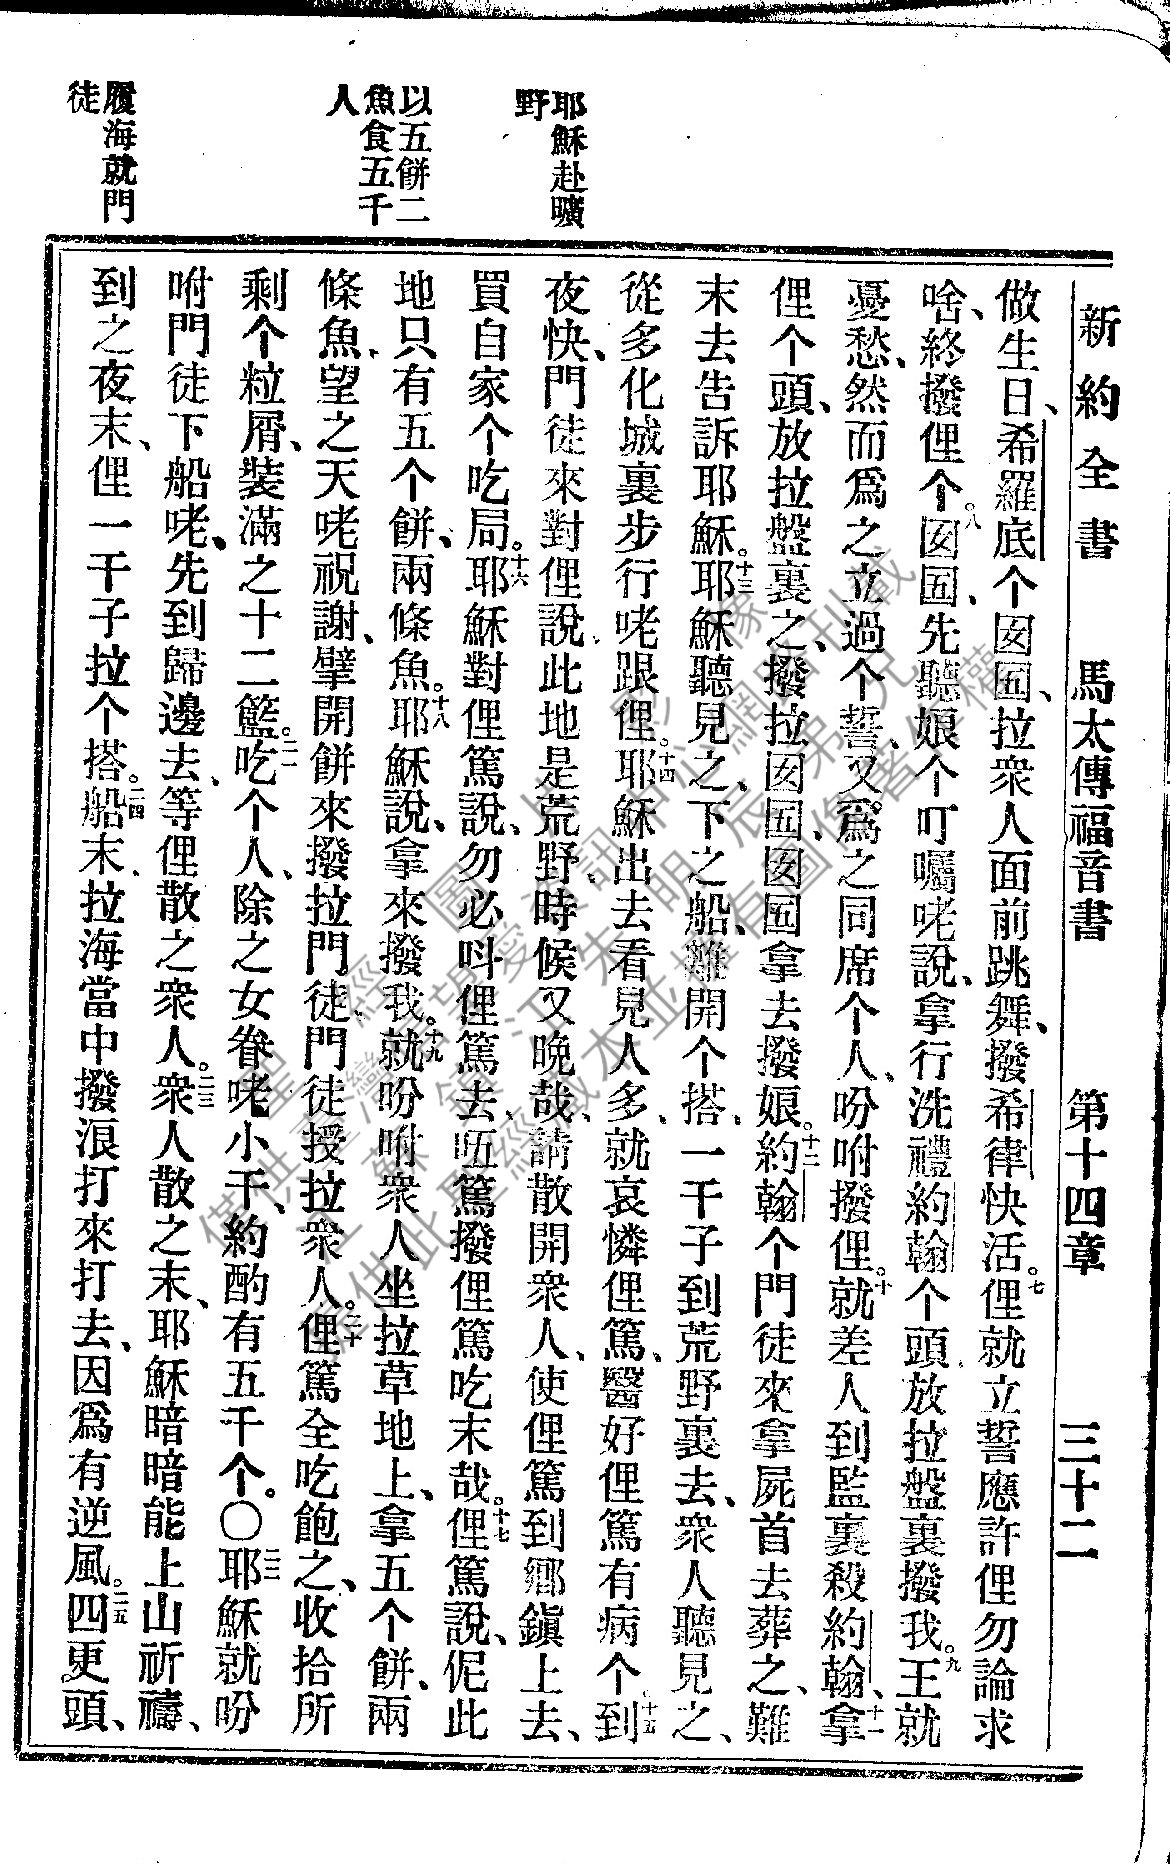 新約全書 馬太傳福音書 第十四章 三十二
耶穌赴曠
野
以五餅二
魚食五千
人
履海就門
徒
做生日、希羅底个囡囝、拉衆人面前跳舞、撥希律快活。七俚就立誓應許俚勿論求
啥、終撥俚个。八囡囝、先聽娘个叮囑咾說、拿行洗禮約翰个頭、放拉盤裏撥我。九王就
憂愁、然而爲之立過个誓、又爲之同席个人、吩咐撥俚。十就差人到監裏殺約翰、十一拿
俚个頭、放拉盤裏之、撥拉囡囝、囡囝拿去撥娘。十二約翰个門徒來拿屍首去葬之、難
末去告訴耶穌。十三耶穌聽見之、下之船、離開个搭、一干子到荒野裏去、衆人聽見之、
從多化城裏步行咾跟俚。十四耶穌出去看見人多、就哀憐俚篤、醫好俚篤有病个、十五到
夜快、門徒來對俚說、此地是荒野、時候又晚哉、請散開衆人、使俚篤到鄉鎮上去、
買自家个吃局。十六耶穌對俚篤說、勿必呌俚篤去、㕶篤撥俚篤吃末哉。十七俚篤說、伲此
地只有五个餅、兩條魚。十八耶穌說、拿來撥我。十九就吩咐衆人坐拉草地上、拿五个餅、兩
條魚、望之天咾祝謝、擘開餅來撥拉門徒、門徒授拉衆人。二十俚篤全吃飽之、收拾所
剩个粒屑、裝滿之十二籃。二一吃个人、除之女眷咾小干、約酌有五千个。〇二二耶穌就吩
咐門徒下船咾、先到歸邊去、等俚散之衆人。二三衆人散之末、耶穌暗暗能上山祈禱、
到之夜末、俚一干子拉个搭。二四船末、拉海當中撥浪打來打去、因爲有逆風。二五四更頭、
聖經圖片影像
僅供臺灣信望愛資訊中心網路刊載
江蘇鎮江朱明辰弟兄
提供此聖經藏本並擁有圖像著作權